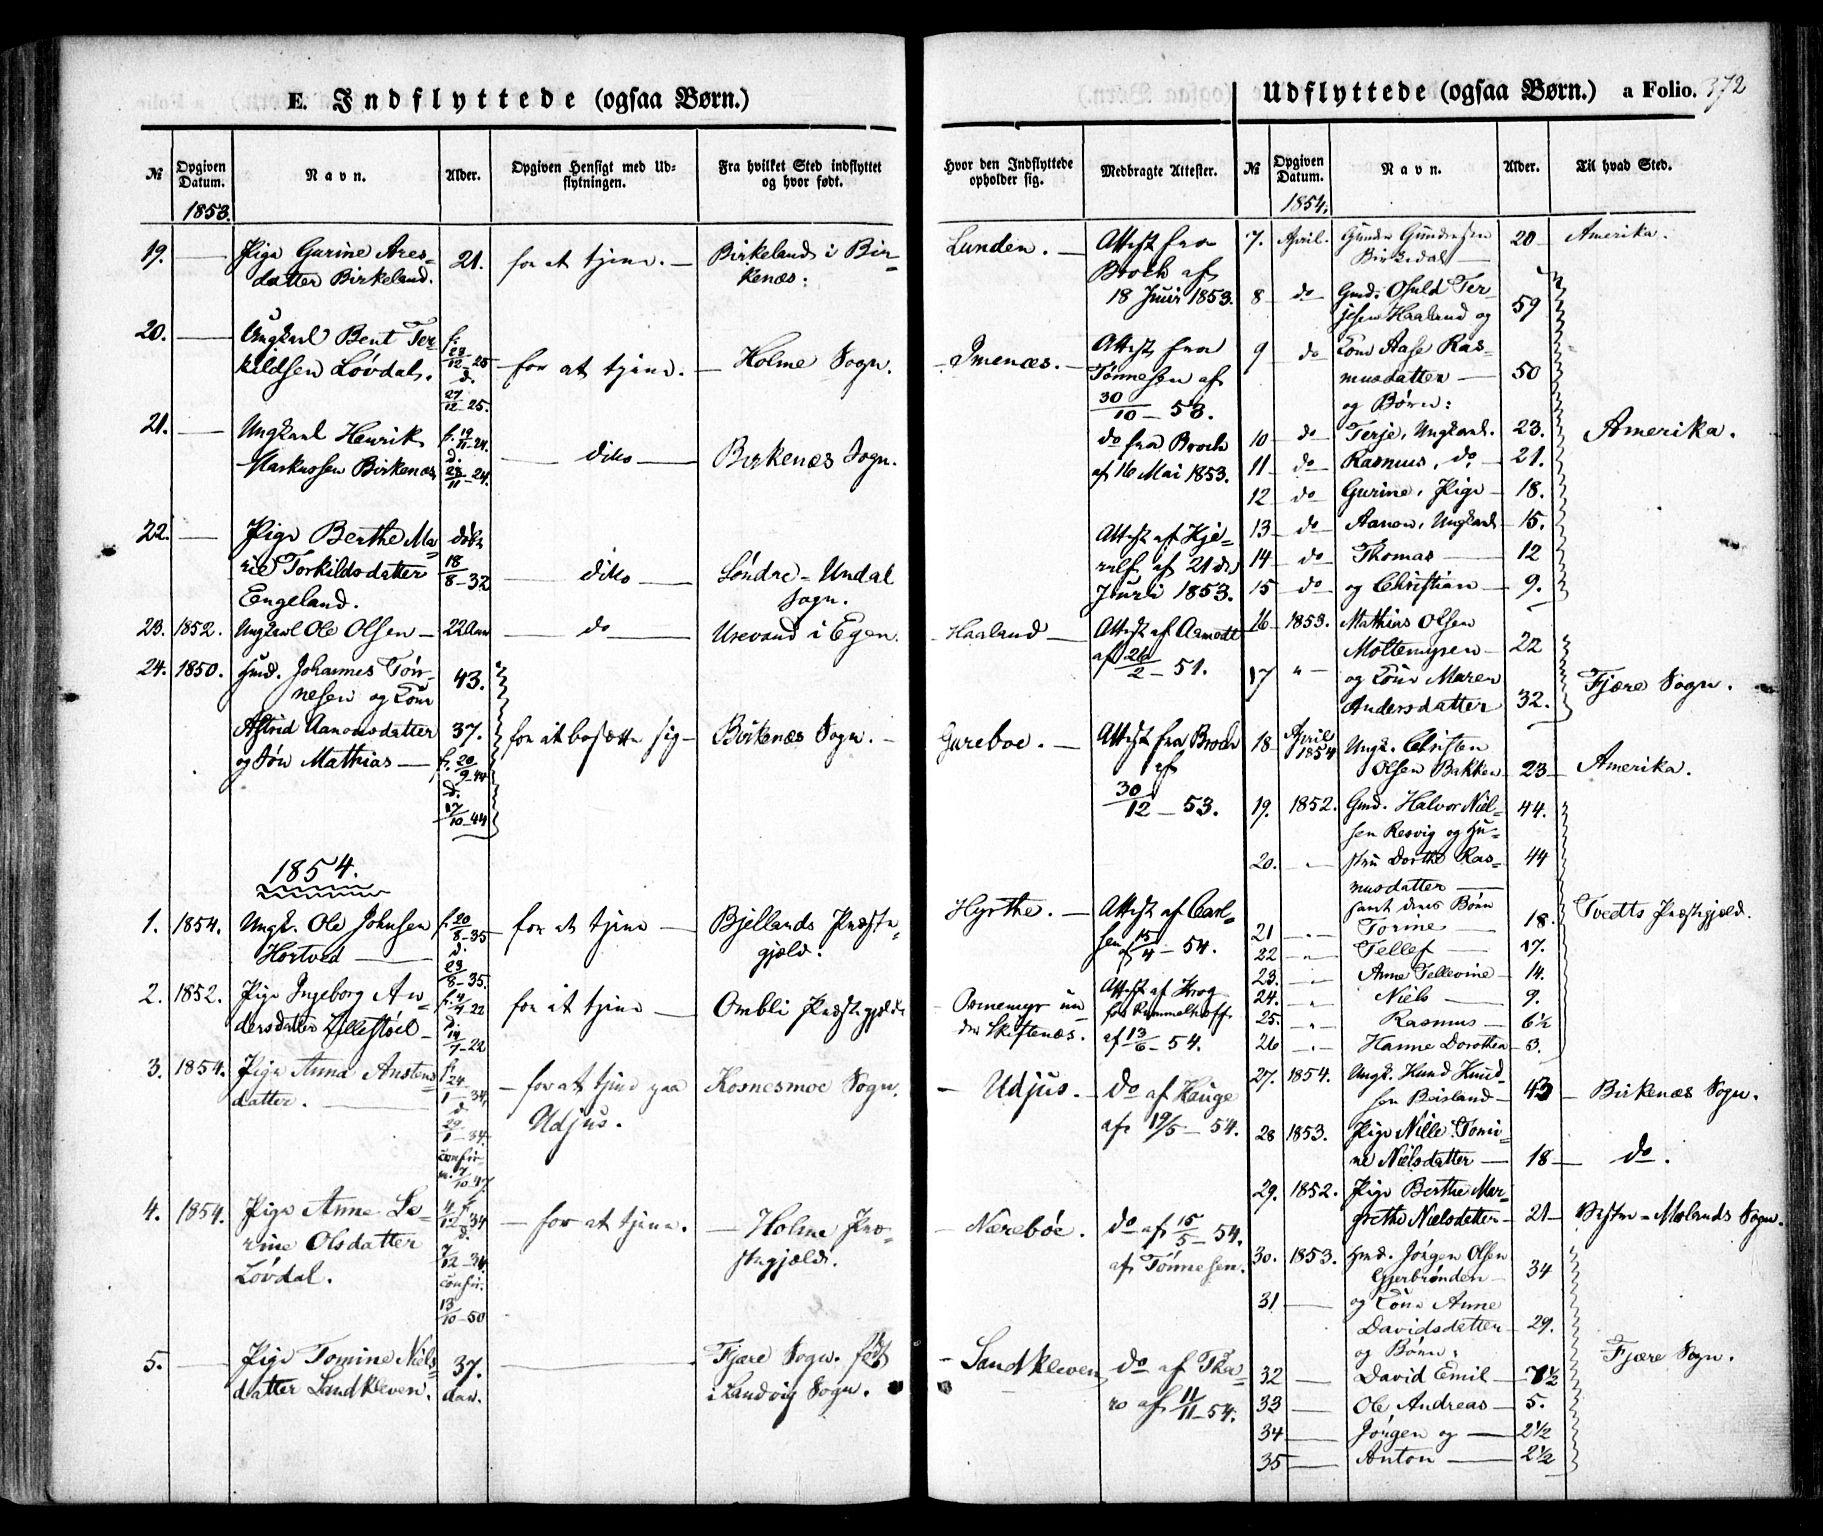 E. Indflyttede (ogsaa Børn.)
No
Opgiven Datum.
Navn.
Alder.
Opgiven Hensigt med Udflytningen.
Fra hvilket Sted indflyttet og hvor født.
1853.
19. — Pige Gurine Ares- 21. for at tjene. — Birkeland i Bir-
datter Birkeland. kenæs.
20. — Ungkarl Bent Ter- f. 23/12-25 for at tjene. — Holme Sogn.
kildsen Løvdal. d. 27/12-25.
21. — Ungkarl Henrik f. 19/11-24. — ditto — Birkenæs Sogn.
Markussen Birkenæs d. 28/11-24.
22. — Pige Berthe Ma- døbt — ditto — Søndre-Undal
rie Torkildsdatter 18/8-32 Sogn.
Engeland.
23. 1852. Ungkarl Ole Olsen — 22 Aar — do — Urevand i Egen.
24. 1850. Hmd. Johannes Tøn- 43.
nesen og Kone
Astrid Aanonsdatter 37. for at bosætte sig — Birkenæs Sogn. —
og Søn Mathias — f. 20/9-44
d. 17/10-44
1854.
1. 1854. Ungk. Ole Johnsen f. 20/8-35 for at tjene — Bjellands Præste-
Hortved — d. 23/8-35. gjeld.
2. 1852. Pige Ingeborg An- f. 4/4-22 for at tjene — Ombli Præstegjeld
dersdatter Lillestøel — d. 14/7-22
3. 1854. Pige Anna Austens f. 24/1-34 — for at tjene paa Kosnesmoe Sogn.
datter. — d. 29/1-34. Udjus.
confir-
m. 7/10-47.
4. 1854. Pige Anne Se- 4/12 f. 34 — for at tjene. — Holme Præ-
rine Olsdatter d. 7/12-34. stegjeld.
Løvdal. confir.
13/10-50
5. — Pige Tomine Niels 37. — Fjære Sogn. født
datter Sandkleven. Aar. i Landvig Sogn.
Hvor den Indflyttede opholder sig.
Medbragte Attester.
Lunden. — Attest fra
Broch af
18 Juni 1853.
Imenæs. — Attest fra
Tønnesen af
30/10-53.
do fra Broch
af 16 Mai 1853.
Attest af Kje-
rulf af 21de
Juni 1853.
Haaland — Attest af Aamodt
af 26/2-51.
Gureboe. — Attest fra Broch
af
30/12-53.
Hyrthe. — Attest af Carl-
sen af 15/4-54.
Ornemyr un- Attest af Krog
der Skiftenæs. for Rummelhoff.
af 13/6-54.
— Udjus. — do af Hauge
af 19/5-54.
— Nærebøe. do af 15/5-54.
af Tønnesen.
— Sandkleven do af Tha-
ro af 11/11-54.
Udflyttede (ogsaa Børn.) a Folio. 372
No
Opgiven Datum.
Navn.
Alder.
Til hvad Sted.
1854.
7. April. Gunder Gundersen 20 — Amerika.
Birkedal —
8 — do — Gmd. Osuld Ter-
jesen Haaland og 59
9 do Kone Aase Ras-
musdatter — 50
og Børn:
10 — do Terje, Ungkarl. 23. Amerika.
11 — do Rasmus, do — 21.
12 do Gurine, Pige — 18.
13 — do — Aanon, Ungkarl — 15.
14 — do Thomas — 12
15 — do — og Christian — 9.
16 1853. Mathias Olsen
Moltemyren — 22
17 " — og Kone Maren Fjære Sogn.
Andersdatter 32.
18 April 1854 Ungk. Christen
Olsen Bakken — 23 — Amerika.
19. 1852. Gmd. Halvor Niel- 44.
sen Resvig og Hu-
20. " stru Dorthe Ras- 44
musdatter —
samt deres Børn Tvedts Præstegjeld.
21 — " — Torine — 18.
22 — " — Tellef — 17.
23. — " — Anne Tellevine — 14.
24. — " — Niels — 9.
25. — " — Rasmus — 6½
26 — " — Hanne Dorothea — 3.
27. 1854. Ungk. Knud Knud-
sen Beisland — 43 — Birkenæs Sogn.
28 1853. Pige Nille Tomi-
ne Nielsdatter — 18 — do.
29. 1852. Pige Berthe Mar-
grethe Nielsdatter — 21 — Vestre-Molands Sogn.
30. 1853. Hmd. Jørgen Olsen
Gjerbrønden — 34
31 — og Kone Anne
Davidsdatter — 29.
og Børn: Fjære Sogn.
32 — David Emil — 7½
33 — Ole Andreas — 5.
34 — Jørgen og — 2½
35 — Anton — 2½